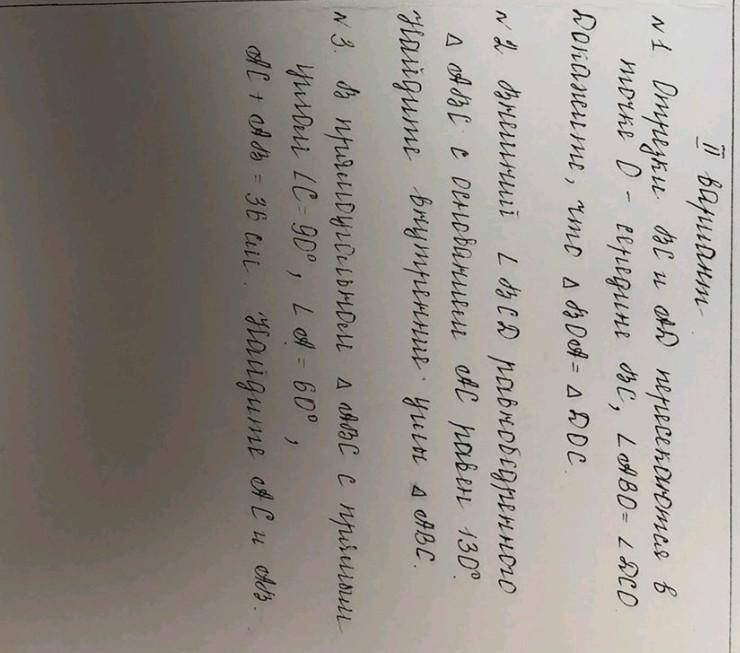 II вариант
N1 Отрезки BC и AD пересекаются в
точке O - середине BC, ∠ABO = ∠DCO
Докажите, что △BOA = △DOC.
N2 Внешний ∠BCD равнобедренного
△ABC с основанием AC равен 130°.
Найдите внутренние углы △ABC.
N3. В прямоугольном △ABC с прямым
углом ∠C = 90°, ∠A = 60°,
AC + AB = 36 см. Найдите AC и AB.